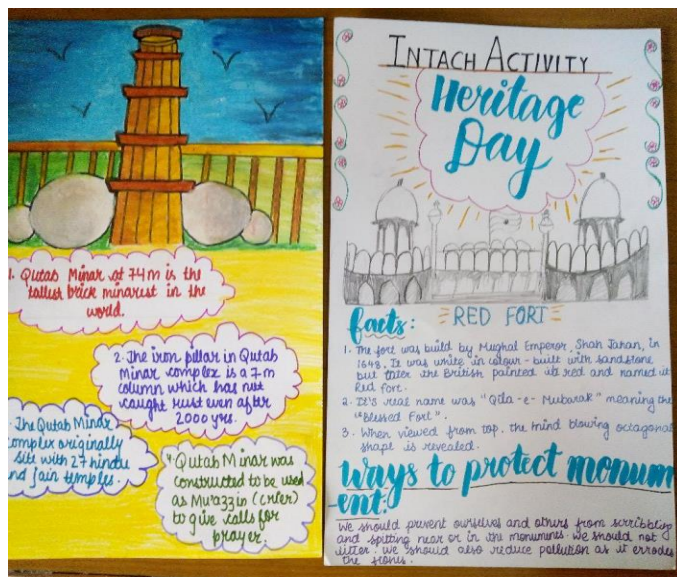 1. Qutab Minar at 74m is the
tallest brick minarest in the
world.
2. The iron pillar in Qutab
Minar complex is a 7m
column which has not
caught rust even after
2000 yrs.
The Qutab Minar
complex originally
site with 27 hindu
and jain temples.
4. Qutab Minar was
constructed to be used
as Mu'azzin (crier)
to give calls for
prayer.
INTACH ACTIVITY
Heritage
Day
RED FORT
facts:
1. The fort was build by Mughal Emperor, Shah Jahan, in
1648. It was white in colour - built with sandstone
but later the British painted it red and named it
Red fort.
2. It's real name was "Qila-e-Mubarak" meaning the
"Blessed Fort".
3. When viewed from top, the mind blowing octagonal
shape is revealed.
Ways to protect monum
-ent:
We should prevent ourselves and others from scribbling
and spitting near or in the monuments. We should not
litter. We should also reduce pollution as it errodes
the stones.